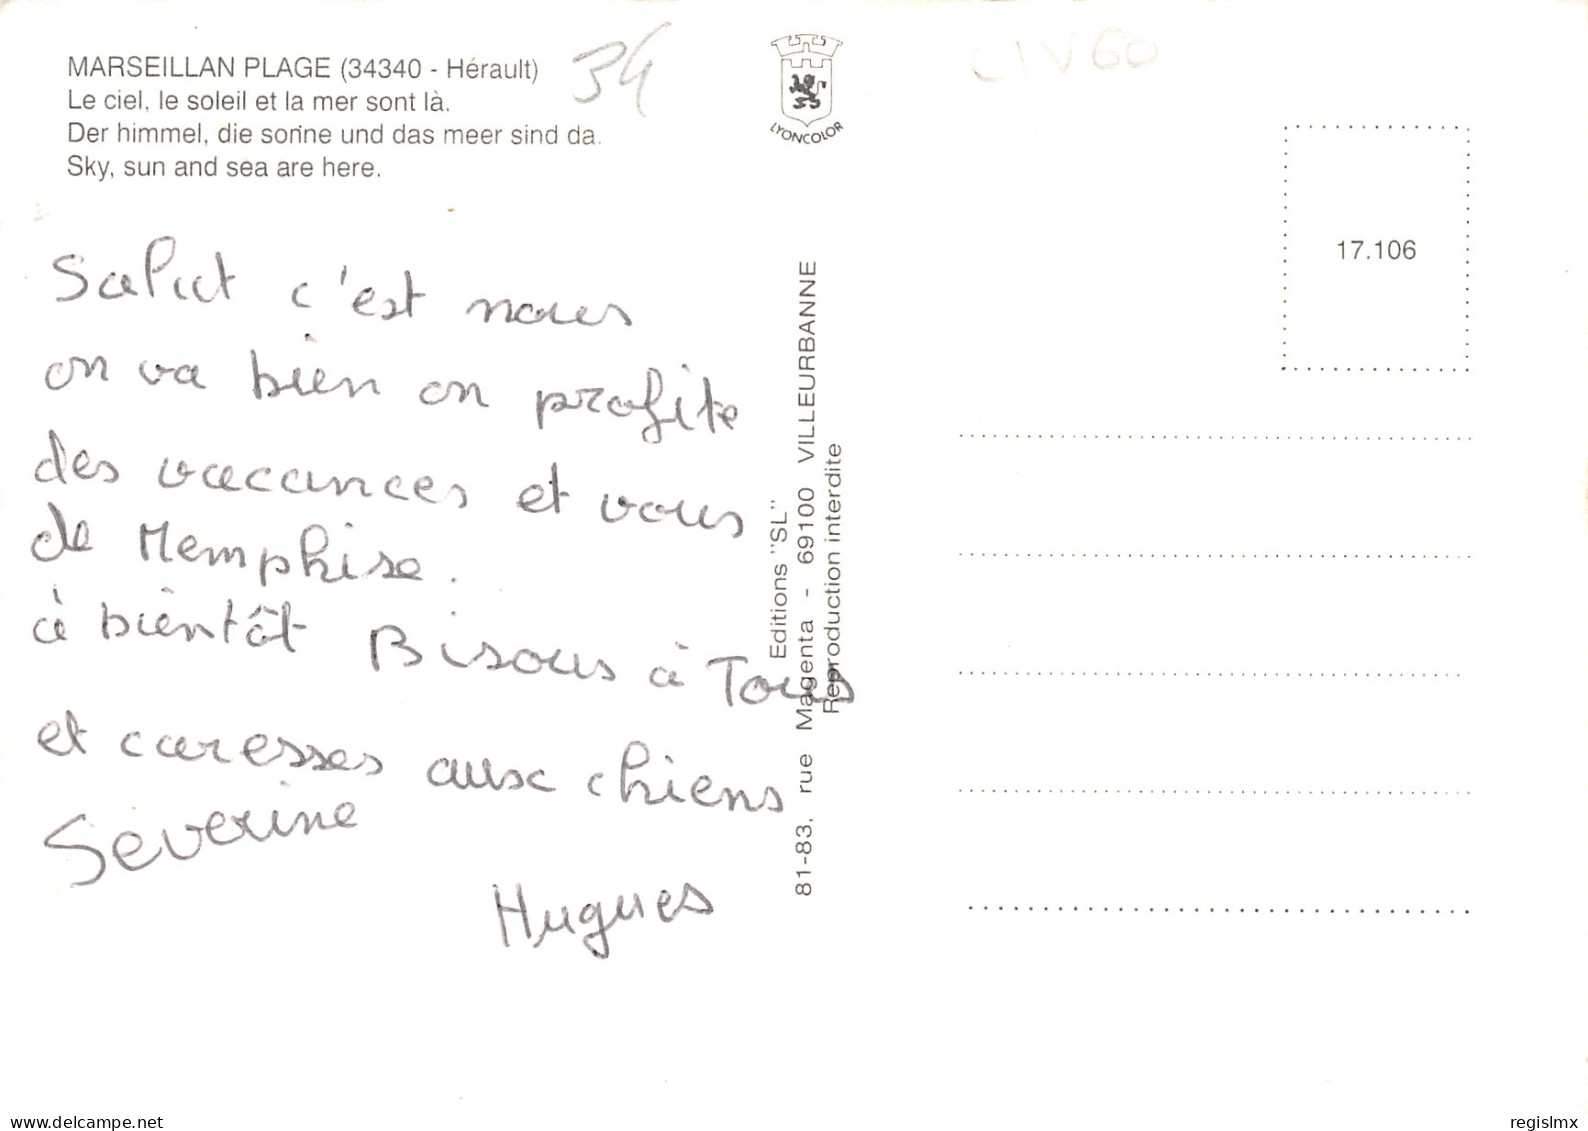 MARSEILLAN PLAGE (34340 - Hérault)
Le ciel, le soleil et la mer sont là.
Der himmel, die sonne und das meer sind da.
Sky, sun and sea are here.
34
LYONCOLOR
CIV60
17.106
Salut c'est nous
on va bien on profite
des vacances et vous
de Memphise.
à bientôt Bisous à Tous
et caresses aux chiens
Severine
Hugues
Editions "SL"
81-83, rue Magenta - 69100 VILLEURBANNE
Reproduction interdite
www.delcampe.net
regislmx